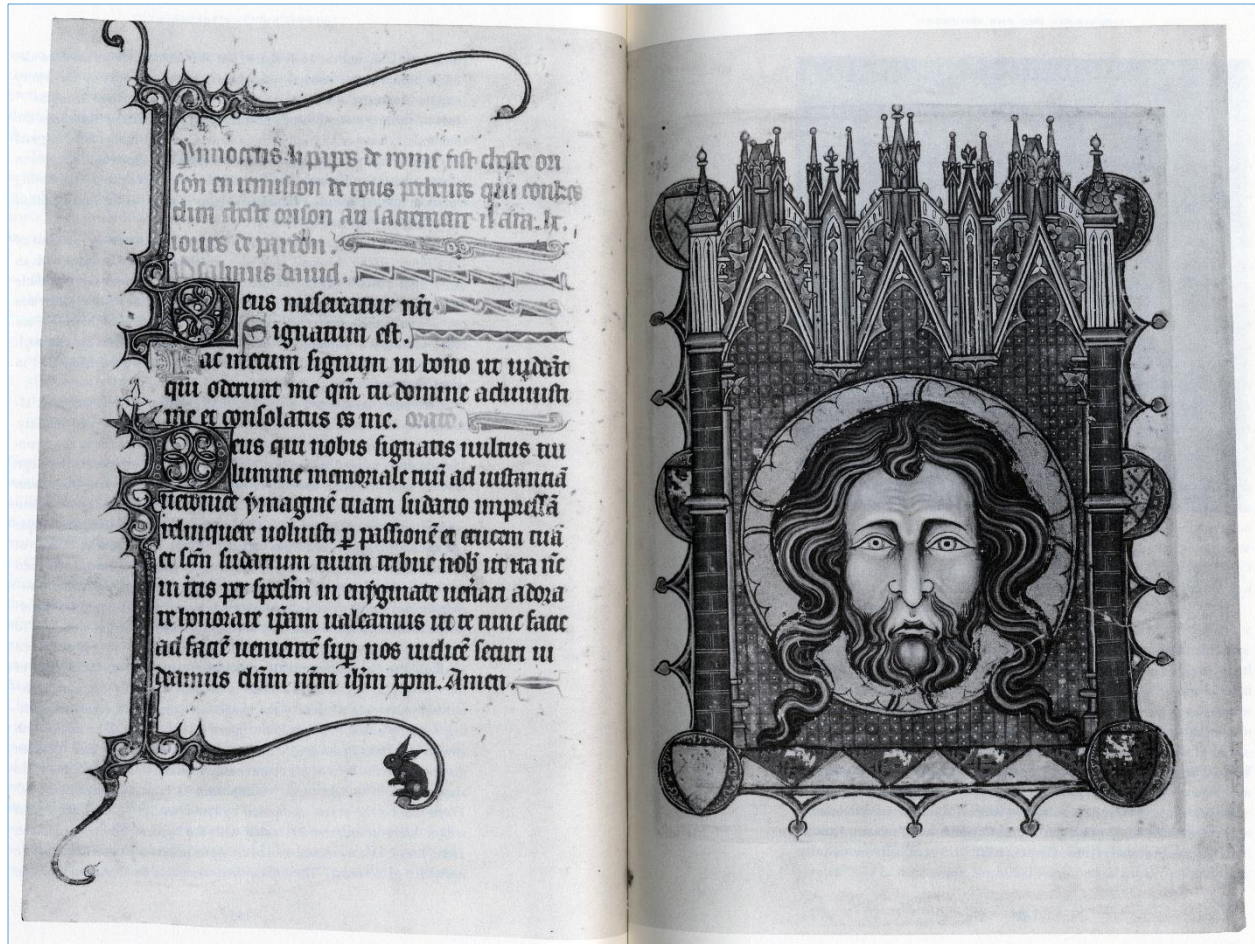 Innocens li papes de rome fist cheste ori
son en remission de tous pecheurs qui
cheste orison au sacrement il ara. lx.
iours de pardon.
psalmus dauid.
Deus misereatur nri
Signatum est.
Fac mecum signum in bono ut uideãt
qui oderunt me qm̃ tu domine adiuuisti
me et consolatus es me. orato.
Deus qui nobis signatis uultus tui
lumine memoriale tuũ ad instanciã
ueronice ymaginẽ tuam sudario impressã
relinquere uoluisti p passionẽ et crucem tuã
et scm̃ sudarium tuum tribue nob ut ita nc̃
in tris per spec̃lm in enygmate uenari adora
re honorare ipsam ualeamus ut te tunc facie
ad faciẽ uenientẽ sup nos iudicẽ securi ui
deamus dnm̃ nrm̃ ihm̃ xpm. Amen.